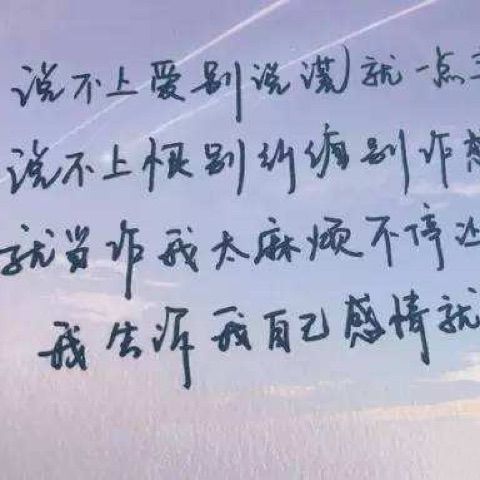 说不上爱别说谎就一点
说不上恨别纠缠别作感
就当作我太麻烦不停
我告诉我自己感情就